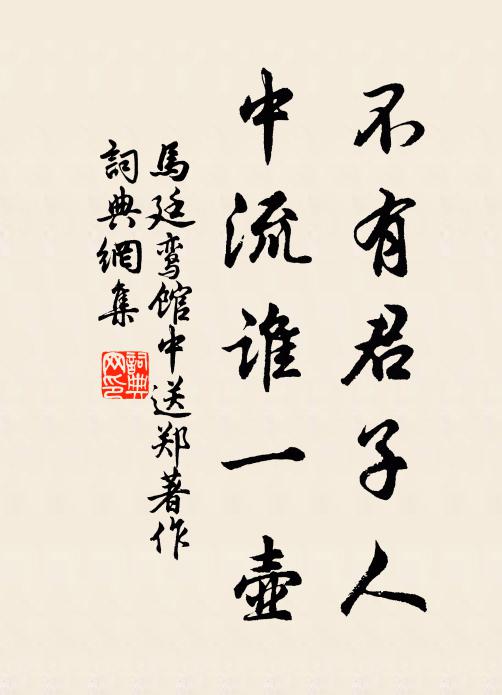 不有君子人
中流谁一壺
馬廷鸾館中送郑著作
詞典網集
詞典网印